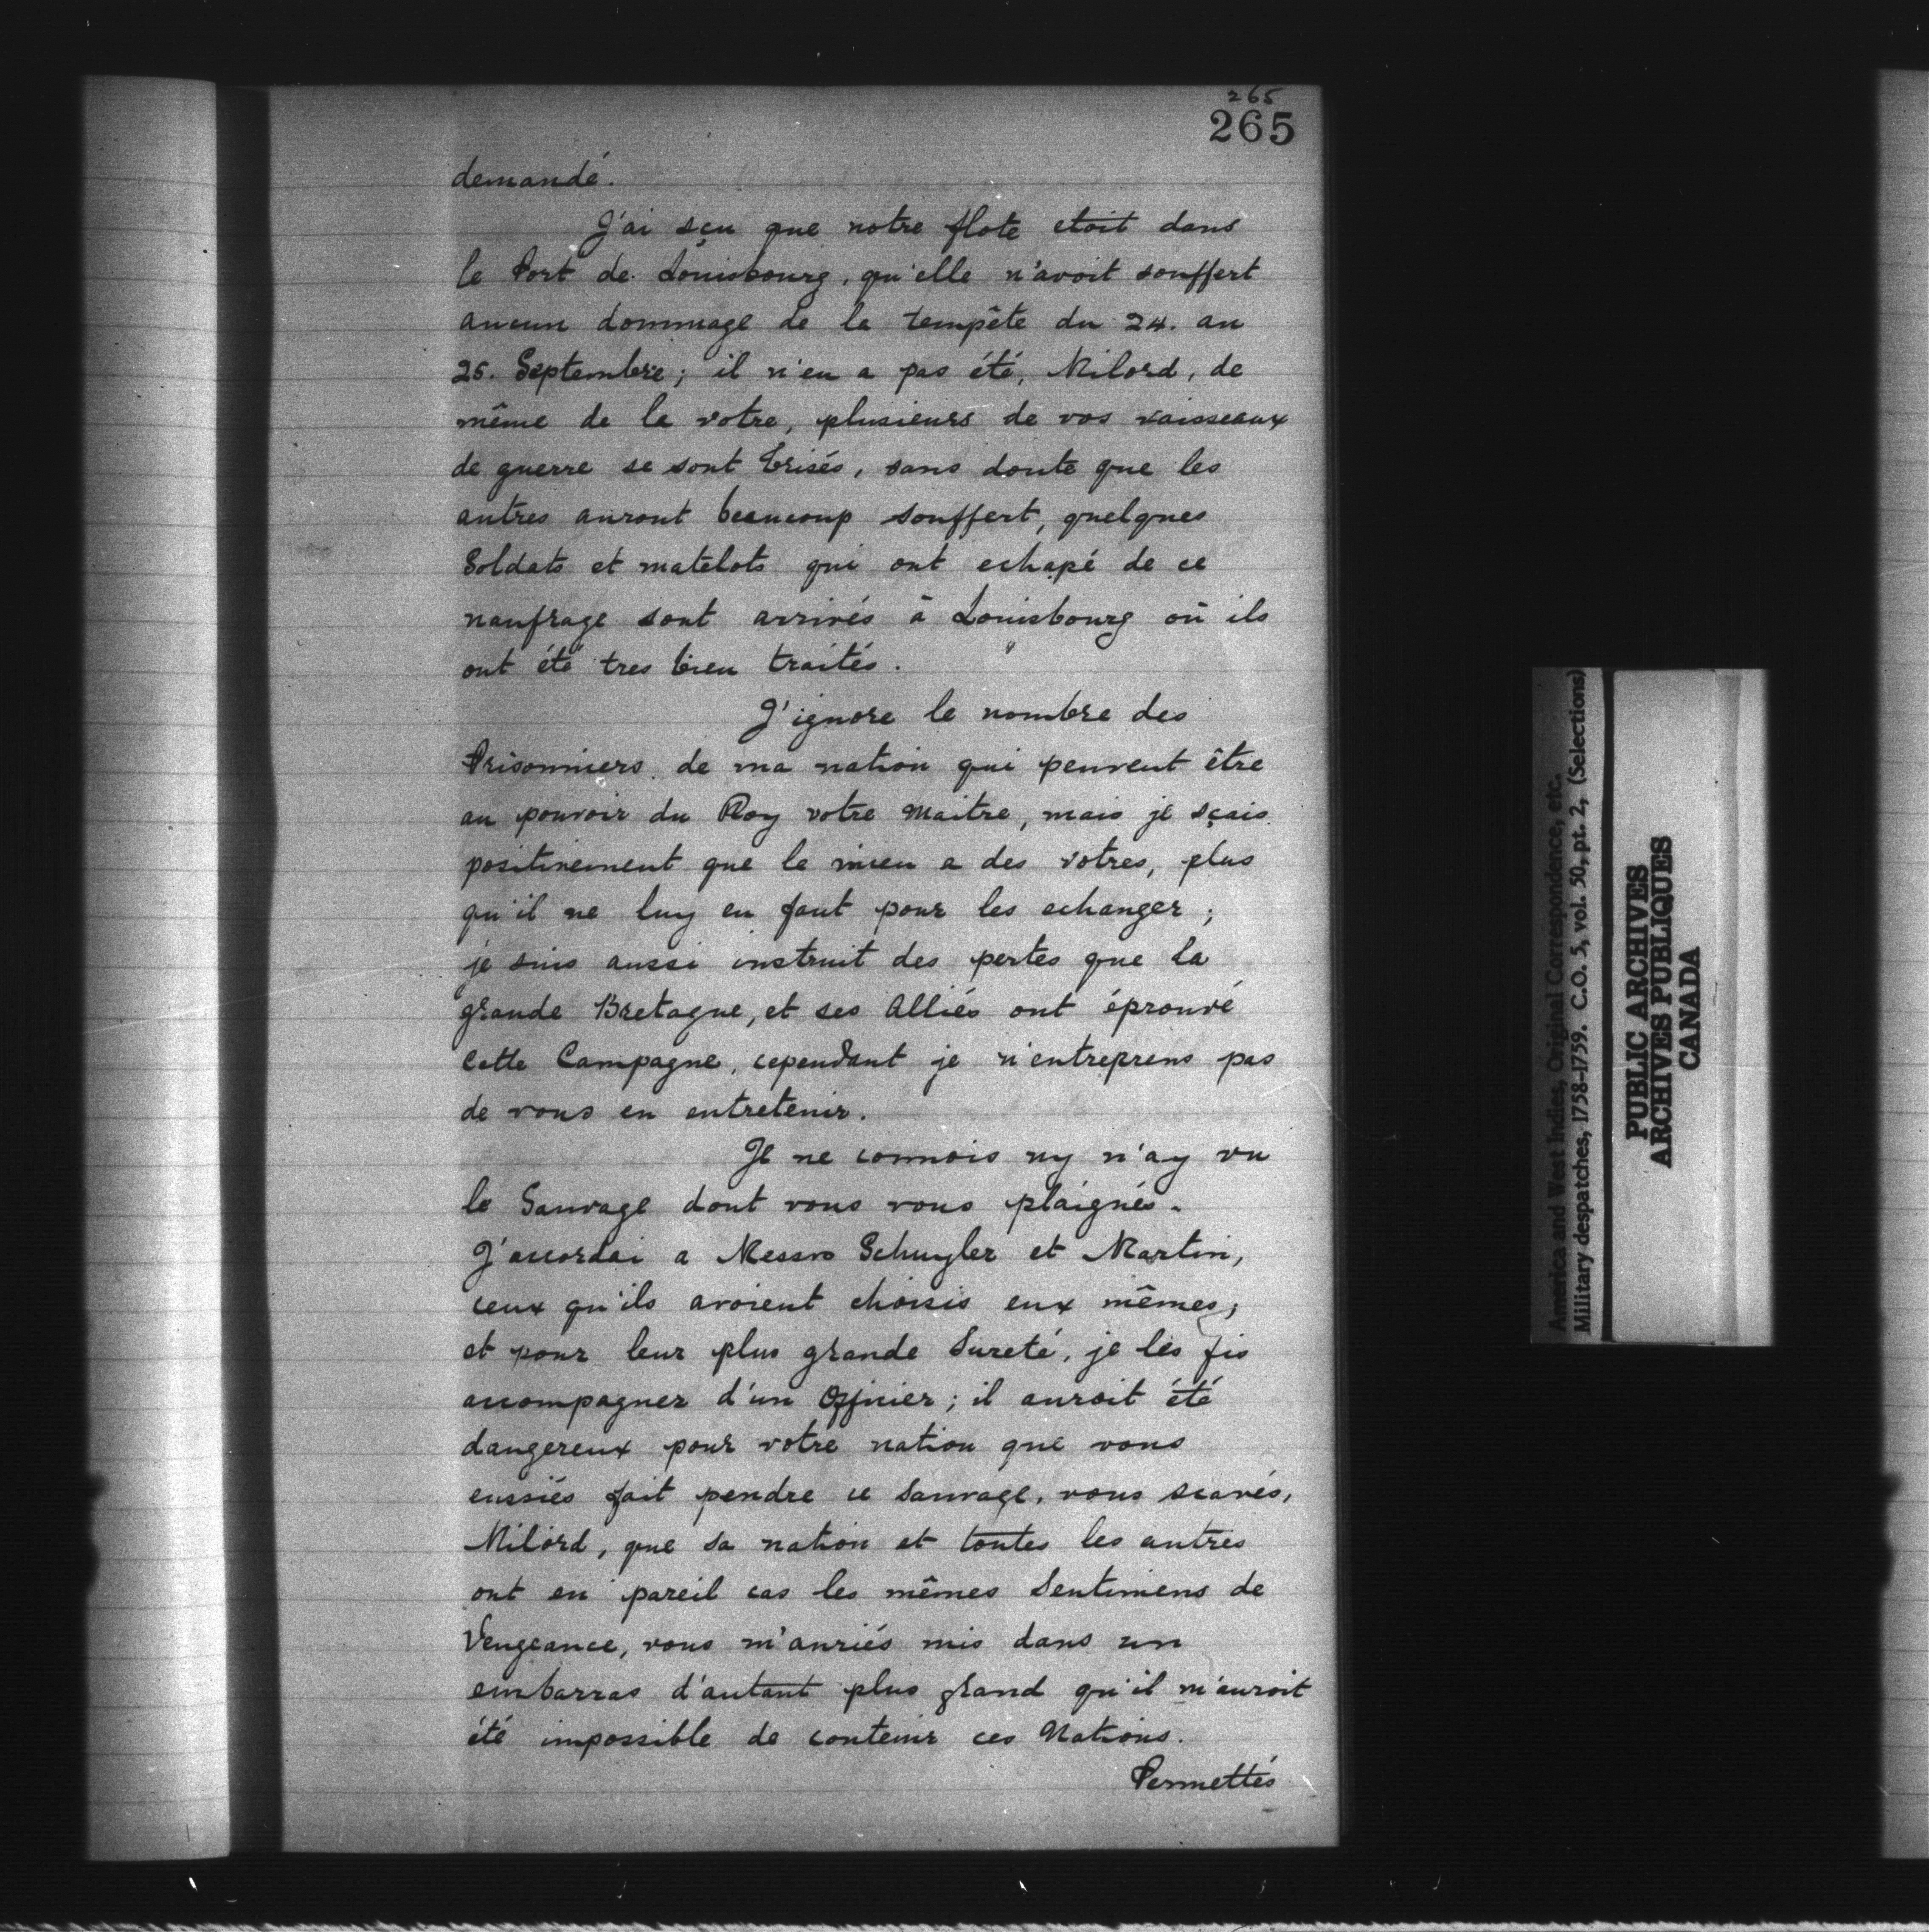 265
265
demandé.
J'ai sçu que notre flote etoit dans
le Port de Louisbourg, qu'elle n'avoit souffert
aucun dommage de la tempête du 24. au
25. Septembre; il n'en a pas été, Milord, de
même de la votre, plusieurs de vos vaisseaux
de guerre se sont brisés, sans doute que les
autres auront beaucoup souffert, quelques
Soldats et matelots qui ont echapé de ce
naufrage sont arrivés à Louisbourg où ils
ont été tres bien traités.
J'ignore le nombre des
Prisonniers de ma nation qui peuvent être
au pouvoir du Roy votre Maitre, mais je sçais
positivement que le mien a des vôtres, plus
qu'il ne luy en faut pour les echanger;
je suis aussi instruit des pertes que la
grande Bretagne, et ses Alliés ont éprouvé
cette Campagne, cependant je n'entreprens pas
de vous en entretenir.
Je ne connois ny n'ay vu
le Sauvage dont vous vous plaignés.
J'accordai a Messrs Schuyler et Martin,
ceux qu'ils avoient choisis eux mêmes,
et pour leur plus grande Sureté, je les fis
accompagner d'un Officier; il auroit été
dangereux pour votre nation que vous
eussiés fait pendre ce Sauvage, vous scavés,
Milord, que sa nation et toutes les autres
ont en pareil cas les mêmes Sentimens de
Vengeance, vous m'auriés mis dans un
embarras d'autant plus grand qu'il m'auroit
été impossible de contenir ces Nations.
Permettés
America and West Indies, Original Correspondence, etc.
Military despatches, 1758-1759. C.O. 5, vol. 50, pt. 2, (Selections)
PUBLIC ARCHIVES
ARCHIVES PUBLIQUES
CANADA